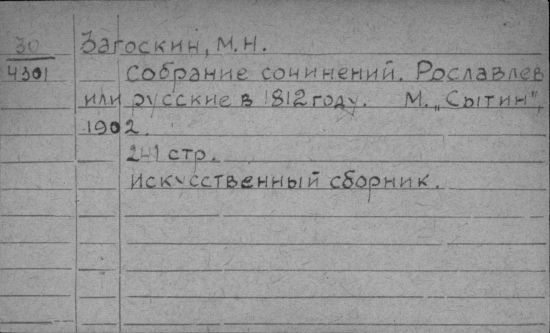 30 Загоскин, М.Н.
4301 Собрание сочинений. Рославлев
или русские в 1812 году. М. „Сытин",
1902.
241 стр.
Искусственный сборник.